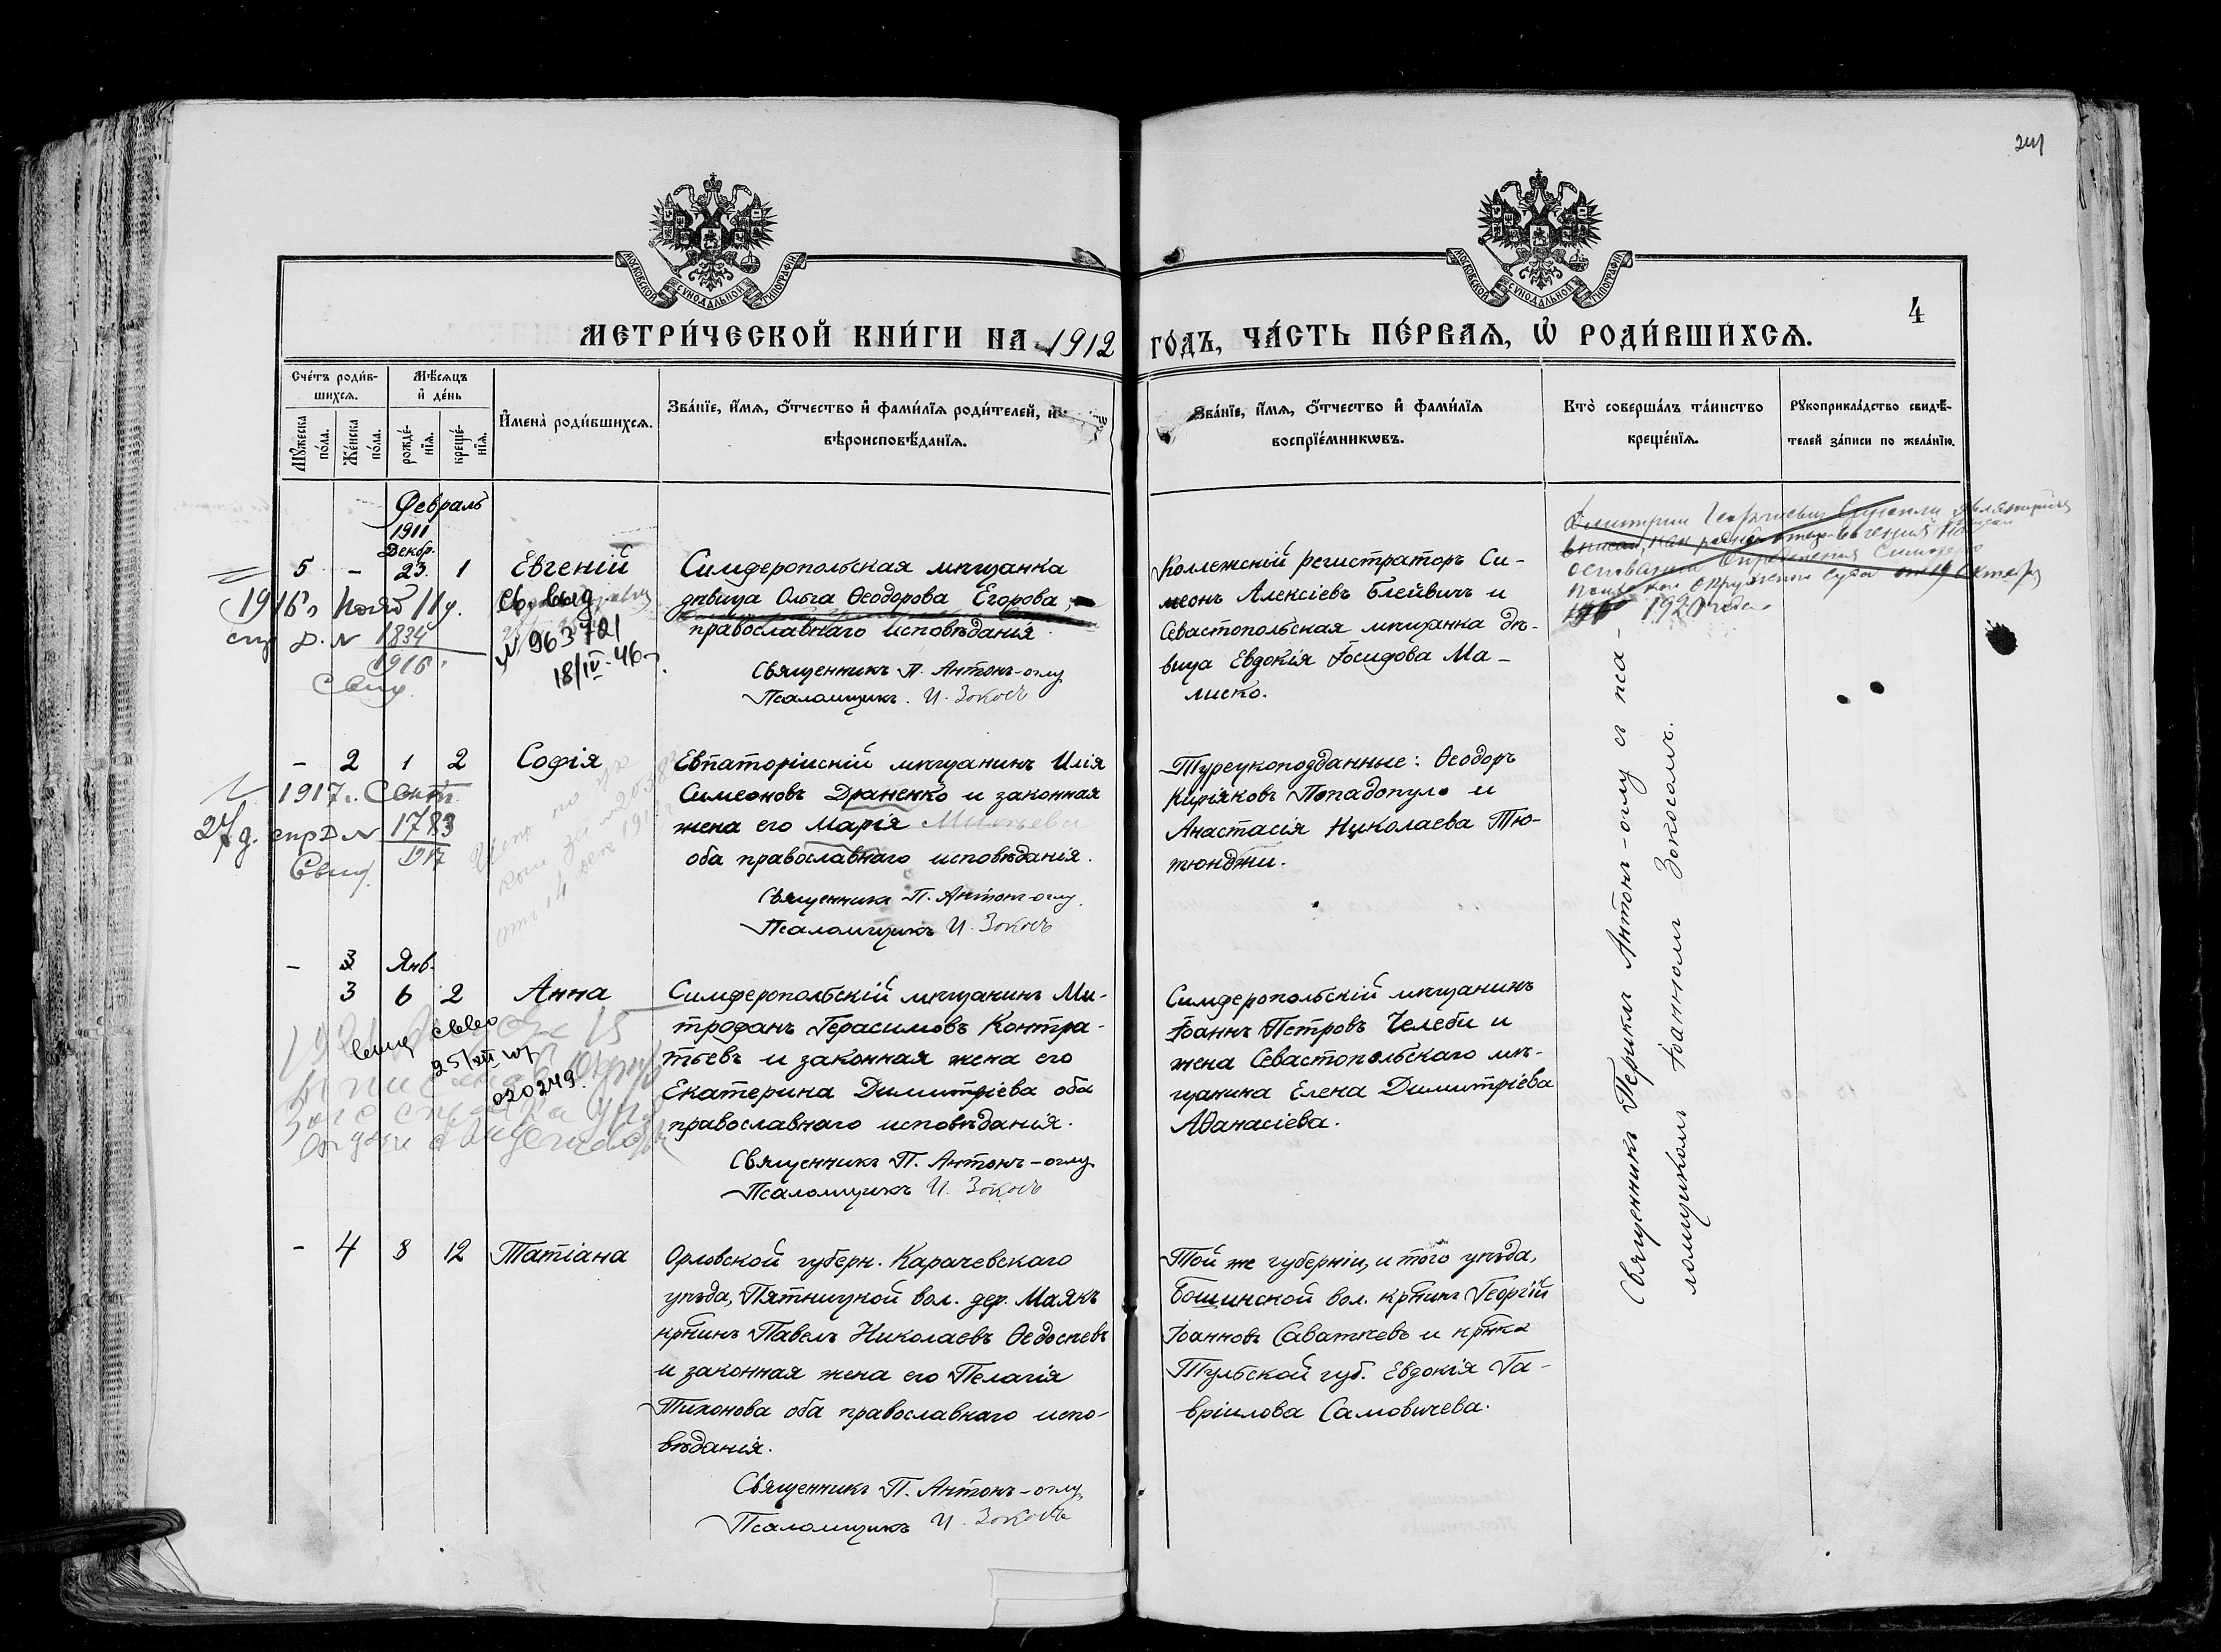 241
МОСКОВСКОЙ СѴНОДАЛЬНОЙ ТИПОГРАФІИ
МОСКОВСКОЙ СѴНОДАЛЬНОЙ ТИПОГРАФІИ
МЕТРИ́ЧЕСКОЙ КНИ́ГИ НА 1912 ГО́ДЪ, ЧА́СТЬ ПЕ́РВАѦ, Ѽ РОДИ́ВШИХСѦ.
4
Сче́тъ роди́в-
шихсѧ.
Мꙋ́жеска по́ла.
Же́нска по́ла.
Мѣ́сѧцъ
и҆ де́нь
рожде́-
нїѧ.
креще́-
нїѧ.
И҆мена̀ роди́вшихсѧ.
Зва́нїе, и҆́мѧ, ѻ҆́тчество и҆ фами́лїѧ роди́телей, и҆
вѣроисповѣ́данїѧ.
Зва́нїе, и҆́мѧ, ѻ҆́тчество и҆ фами́лїѧ
воспрїе́мникѡвъ.
Кто̀ соверша́лъ та́инство
креще́нїѧ.
Рꙋкоприкла́дство свидѣ́-
телей за́писи по жела́нїю.
Февраль
1911
Декбр.
5 - 23. 1 Евгеній
Симферопольская мѣщанка
дѣвица Ольга Ѳеодорова Егорова,
православнаго исповѣданія.
Священникъ П. Антонъ-оглу
Псаломщикъ. И. Зокосъ
Коллежскій регистраторъ Си-
меонъ Алексіевъ Блейвичъ и
Севастопольская мѣщанка дѣ-
вица Евдокія Іосифова Ма-
лиско.
1920 года
1916 г. 11 д.
спр. Д. N 1834
1916
Свид.
Св. выд
N 963721
18/IV-46
- 2 1 2 Софія
Евпаторійскій мѣщанинъ Илія
Симеоновъ Драненко и законная
жена его Марія
оба православнаго исповѣданія.
Священникъ П. Антонъ-оглу.
Псаломщикъ И. Зокосъ
Турецкоподданные: Ѳеодоръ
Киріяковъ Попадопуло и
Анастасія Николаева Тю-
тюнджи.
1917 г. Сент.
27 д. спр Д N 1783
1917
Свид.
- 3 Янв.
3 6 2 Анна
Симферопольскій мѣщанинъ Ми-
трофанъ Герасимовъ Контра-
тьевъ и законная жена его
Екатерина Димитріева оба
православнаго исповѣданія.
Священникъ П. Антонъ-оглу
Псаломщикъ И. Зокосъ
Симферопольскій мѣщанинъ
Іоаннъ Петровъ Челеби и
жена Севастопольскаго мѣ-
щанина Елена Димитріева
Аѳанасіева.
25/VII
020249.
- 4 8 12 Татіана
Орловской губерн. Карачевскаго
уѣзда, Пятницкой вол. дер. Маякъ
крнинъ Павелъ Николаевъ Ѳедосѣевъ
и законная жена его Пелагія
Тихонова оба православнаго испо-
вѣданія.
Священникъ П. Антонъ-оглу
Псаломщикъ И. Зокосъ
Той же губерніи, и того уѣзда,
Бошинской вол. крнинъ Георгій
Іоанновъ Саватѣевъ и крнка
Тульской губ. Евдокія Га-
вріилова Самовичева.
Священникъ Периклъ Антонъ-оглу съ пса-
ломщикомъ Іоанномъ Зокосомъ.